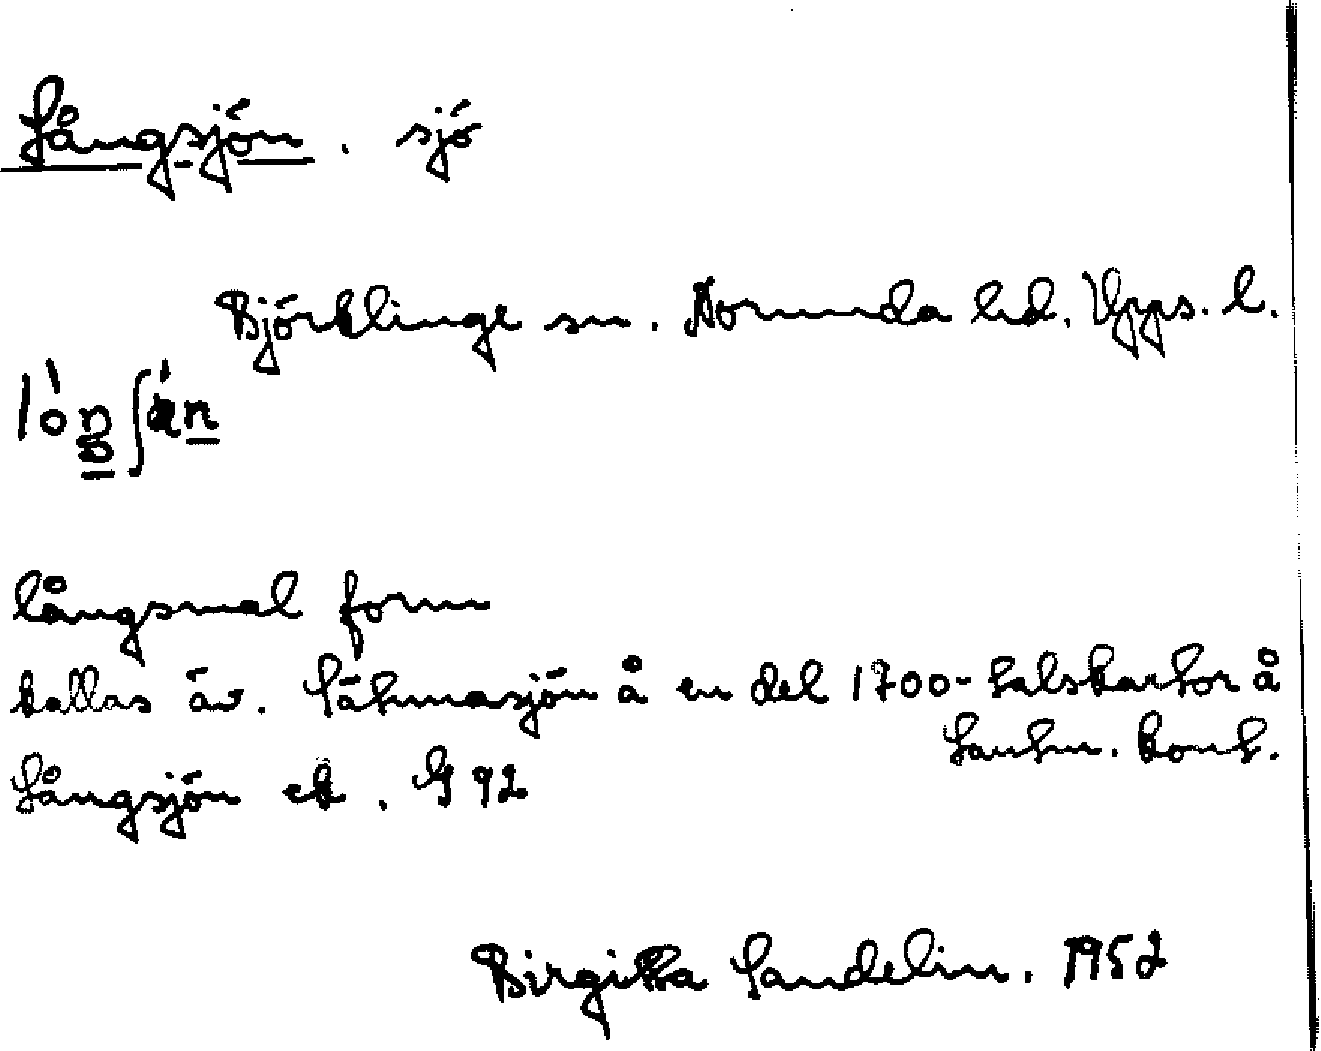 Långsjön. sjö
Björklinge sn. Norunda hd. Upps. l.
långsmal form
kallas äv. Sätunasjön å en del 1700-talskartor å
Lantm. kont.
Långsjön ek. G 92
Birgitta Sandelin. 1952